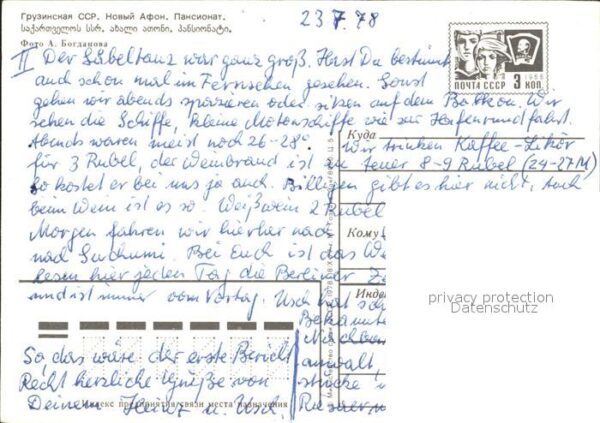 Грузинская ССР. Новый Афон. Пансионат.
საქართველოს სსრ. ახალი ათონი, პანსიონატი.
Фото А. Богданова
23 7. 78
ПОЧТА СССР 3 КОП.
1966
II Der Säbeltanz war ganz groß. Hast Du bestimmt
auch schon mal im Fernsehen gesehen. Sonst
gehen wir abends spazieren oder sitzen auf dem Balkon. Wir
sehen die Schiffe, kleine Motorschiffe wie zur Hafenrundfahrt.
Abends waren meist noch 26-28°
Куда
Wir trinken Kaffee-Likör
für 3 Rubel, der Weinbrand ist teuer 8-9 Rubel (24-27M)
So kostet er bei uns ja auch. Billigen gibt es hier nicht. Auch
beim Wein ist es so. Weißwein 2 Rubel
Morgen fahren wir hier nach
Кому
nach Suchumi. Bei Euch ist das
lesen hier jeden Tag die Berliner
und ist immer vom Vortag. Usch hat
Инде
Bekannte
Nachbar
anwalt
So das wäre der erste Bericht
Recht herzliche Grüße von
Deinem Heinz u. Usch.
Индекс предприятия связи места назначения
privacy protection
Datenschutz